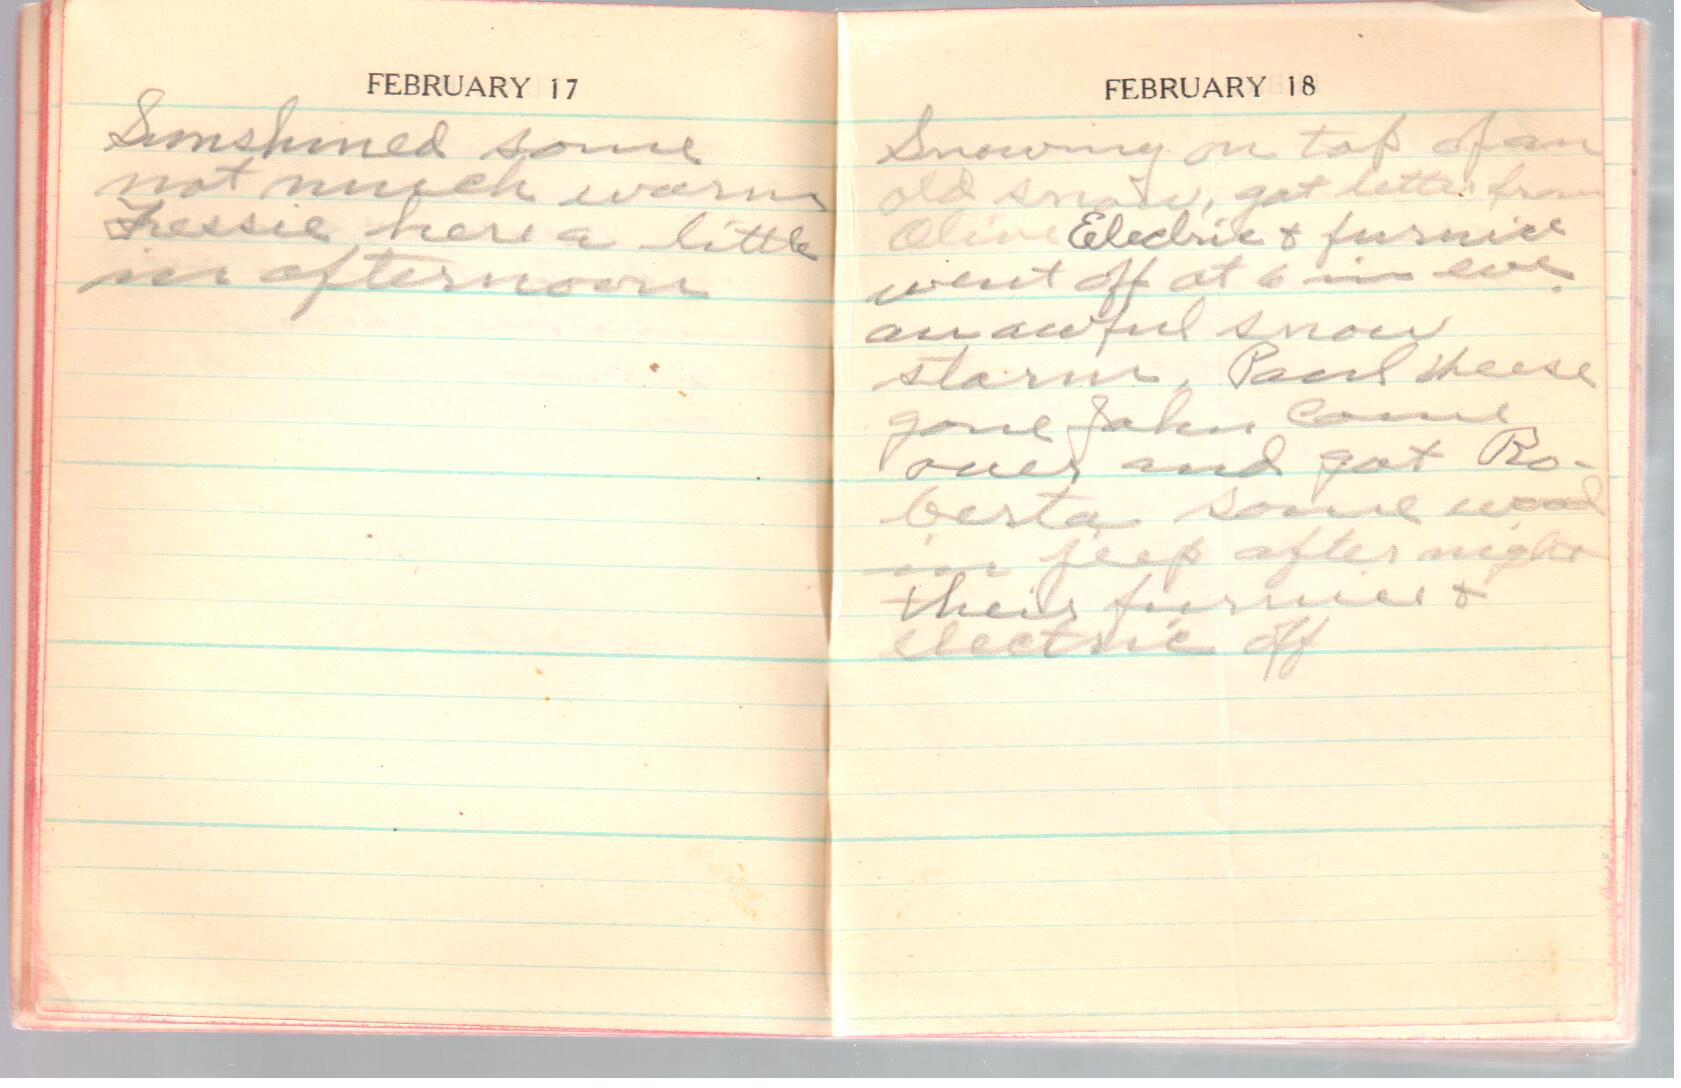 FEBRUARY 17
Sunshined some
not much warm
Tressie here a little
in afternoon
FEBRUARY 18
Snowing on top of an
old snow, got letter from
Olive Electric & furnice
went off at 6 in eve.
an awful snow
storm, Paul
gone John come
over and got Ro-
berta some wood
in jeep after night
their furnice &
electric off